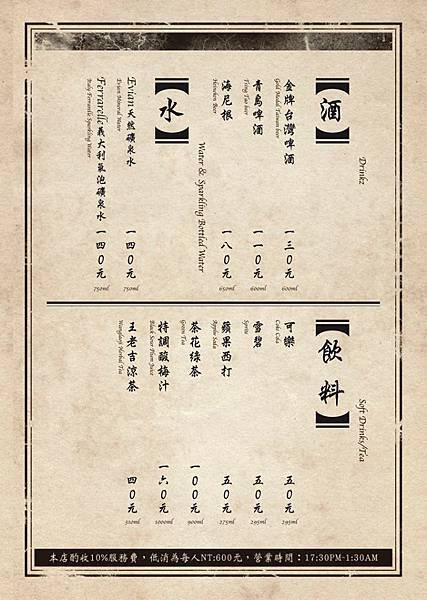 Drinkz
酒
金牌台灣啤酒 一三0元
Gold Medal Taiwan beer 600ml
青島啤酒 一一0元
Tsing Tao beer 600ml
海尼根 一八0元
Beer 650ml
Water & Sparkling Bottled Water
水
Evian天然礦泉水 一四0元
Evian Mineral Water 750ml
Ferrarelle義大利氣泡礦泉水 一四0元
Italy Ferrarelle Sparkling Water 750ml
Soft Drinks/Tea
飲料
可樂 五0元
Coke Cola 295ml
雪碧 五0元
Sprite 295ml
蘋果西打 五0元
Apple Soda 275ml
茶花綠茶 一00元
Green Tea 900ml
特調酸梅汁 一六0元
Black Sour Plum Juice 1000ml
王老吉涼茶 四0元
Wanglaoji Herbal Tea 310ml
本店酌收10%服務費，低消為每人NT:600元，營業時間：17:30PM~1:30AM